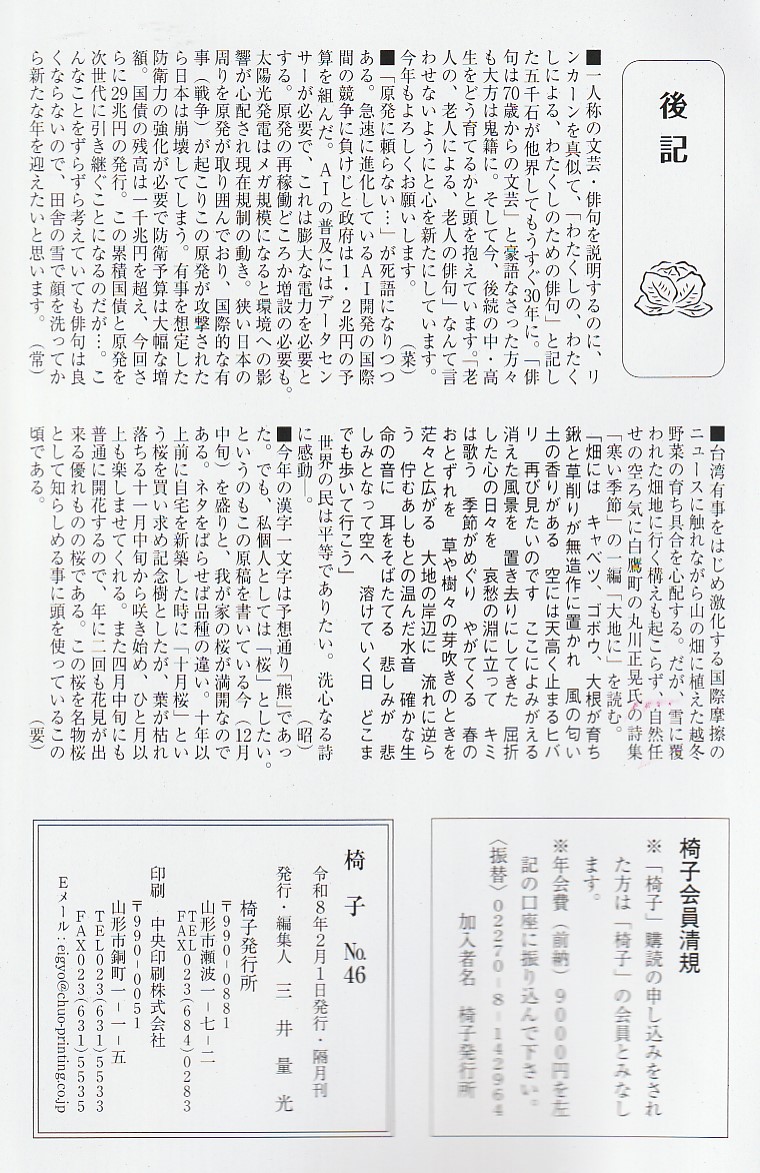 後記
■一人称の文芸・俳句を説明するのに、リ
ンカーンを真似て、「わたくしの、わたく
しによる、わたくしのための俳句」と記し
た五千石が他界してもうすぐ30年に。「俳
句は70歳からの文芸」と豪語なさった方々
も大方は鬼籍に。そして今、後続の中・高
生をどう育てるかと頭を抱えています。「老
人の、老人による、老人の俳句」なんて言
わせないようにと心を新たにしています。
今年もよろしくお願いします。　（菜）
■「原発に頼らない…」が死語になりつつ
ある。急速に進化しているAI開発の国際
間の競争に負けじと政府は1・2兆円の予
算を組んだ。AIの普及にはデータセン
サーが必要で、これは膨大な電力を必要と
する。原発の再稼働どころか増設の必要も。
太陽光発電はメガ規模になると環境への影
響が心配され現在規制の動き。狭い日本の
周りを原発が取り囲んでおり、国際的な有
事（戦争）が起こりこの原発が攻撃された
ら日本は崩壊してしまう。有事を想定した
防衛力の強化が必要で防衛予算は大幅な増
額。国債の残高は一千兆円を超え、今回さ
らに29兆円の発行。この累積国債と原発を
次世代に引き継ぐことになるのだが…。こ
んなことをずらずら考えていても俳句は良
くならないので、田舎の雪で顔を洗ってか
ら新たな年を迎えたいと思います。　（常）
■台湾有事をはじめ激化する国際摩擦の
ニュースに触れながら山の畑に植えた越冬
野菜の育ち具合を心配する。だが、雪に覆
われた畑地に行く構えも起こらず、自然任
せの空ろ気に白鷹町の丸川正晃氏の詩集
「寒い季節」の一編「大地に」を読む。
「畑には　キャベツ、ゴボウ、大根が育ち
鍬と草削りが無造作に置かれ　風の匂い
土の香りがある　空には天高く止まるヒバ
リ　再び見たいのです　ここによみがえる
消えた風景を　置き去りにしてきた　屈折
した心の日々を　哀愁の淵に立って　キミ
は歌う　季節がめぐり　やがてくる　春の
おとずれを　草や樹々の芽吹きのときを
茫々と広がる　大地の岸辺に　流れに逆ら
う　佇むあしもとの温んだ水音　確かな生
命の音に　耳をそばたてる　悲しみが　悲
しみとなって空へ　溶けていく日　どこま
でも歩いて行こう」
世界の民は平等でありたい。洗心なる詩
に感動―。　（昭）
■今年の漢字一文字は予想通り「熊」であっ
た。でも、私個人としては「桜」としたい。
というのもこの原稿を書いている今（12月
中旬）を盛りと、我が家の桜が満開なので
ある。ネタをばらせば品種の違い。十年以
上前に自宅を新築した時に「十月桜」とい
う桜を買い求め記念樹としたが、葉が枯れ
落ちる十一月中旬から咲き始め、ひと月以
上も楽しませてくれる。また四月中旬にも
普通に開花するので、年に二回も花見が出
来る優れものの桜である。この桜を名物桜
として知らしめる事に頭を使っているこの
頃である。　（要）
椅子会員清規
※「椅子」購読の申し込みをされ
た方は「椅子」の会員とみなし
ます。
※年会費（前納）9000円を左
記の口座に振り込んで下さい。
〈振替〉02270-8-142964
加入者名　椅子発行所
椅子　No.46
令和8年2月1日発行・隔月刊
発行・編集人　三井量光
椅子発行所
〒990-0881
山形市瀬波一-七-二
TEL
FAX 023(684)0283
印刷　中央印刷株式会社
〒990-0051
山形市銅町一-一-五
TEL023(631)5533
FAX023(631)5535
Eメール:eigyo@chuo-printing.co.jp